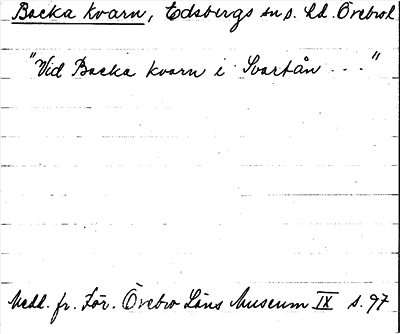 Backa kvarn, Edsbergs sn o. hd. Örebro l
"Vid Backa kvarn i Svartån ..."
Medl. fr. För. Örebro Läns Museum IX s. 97